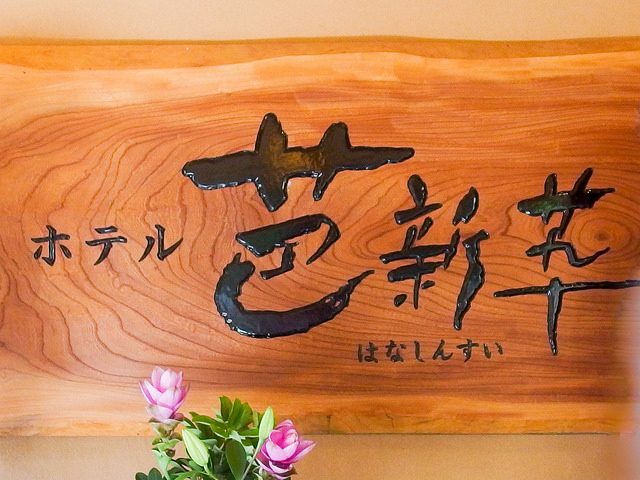 ホテル 芭新萃
はなしんすい